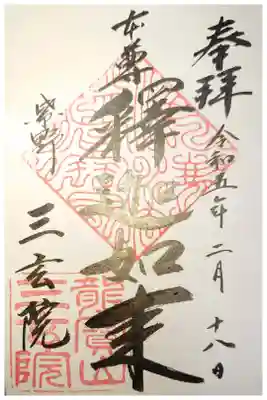 奉拝
令和五年二月十八日
本尊
釋迦如来
紫野
三玄院
龍寶山
三玄院